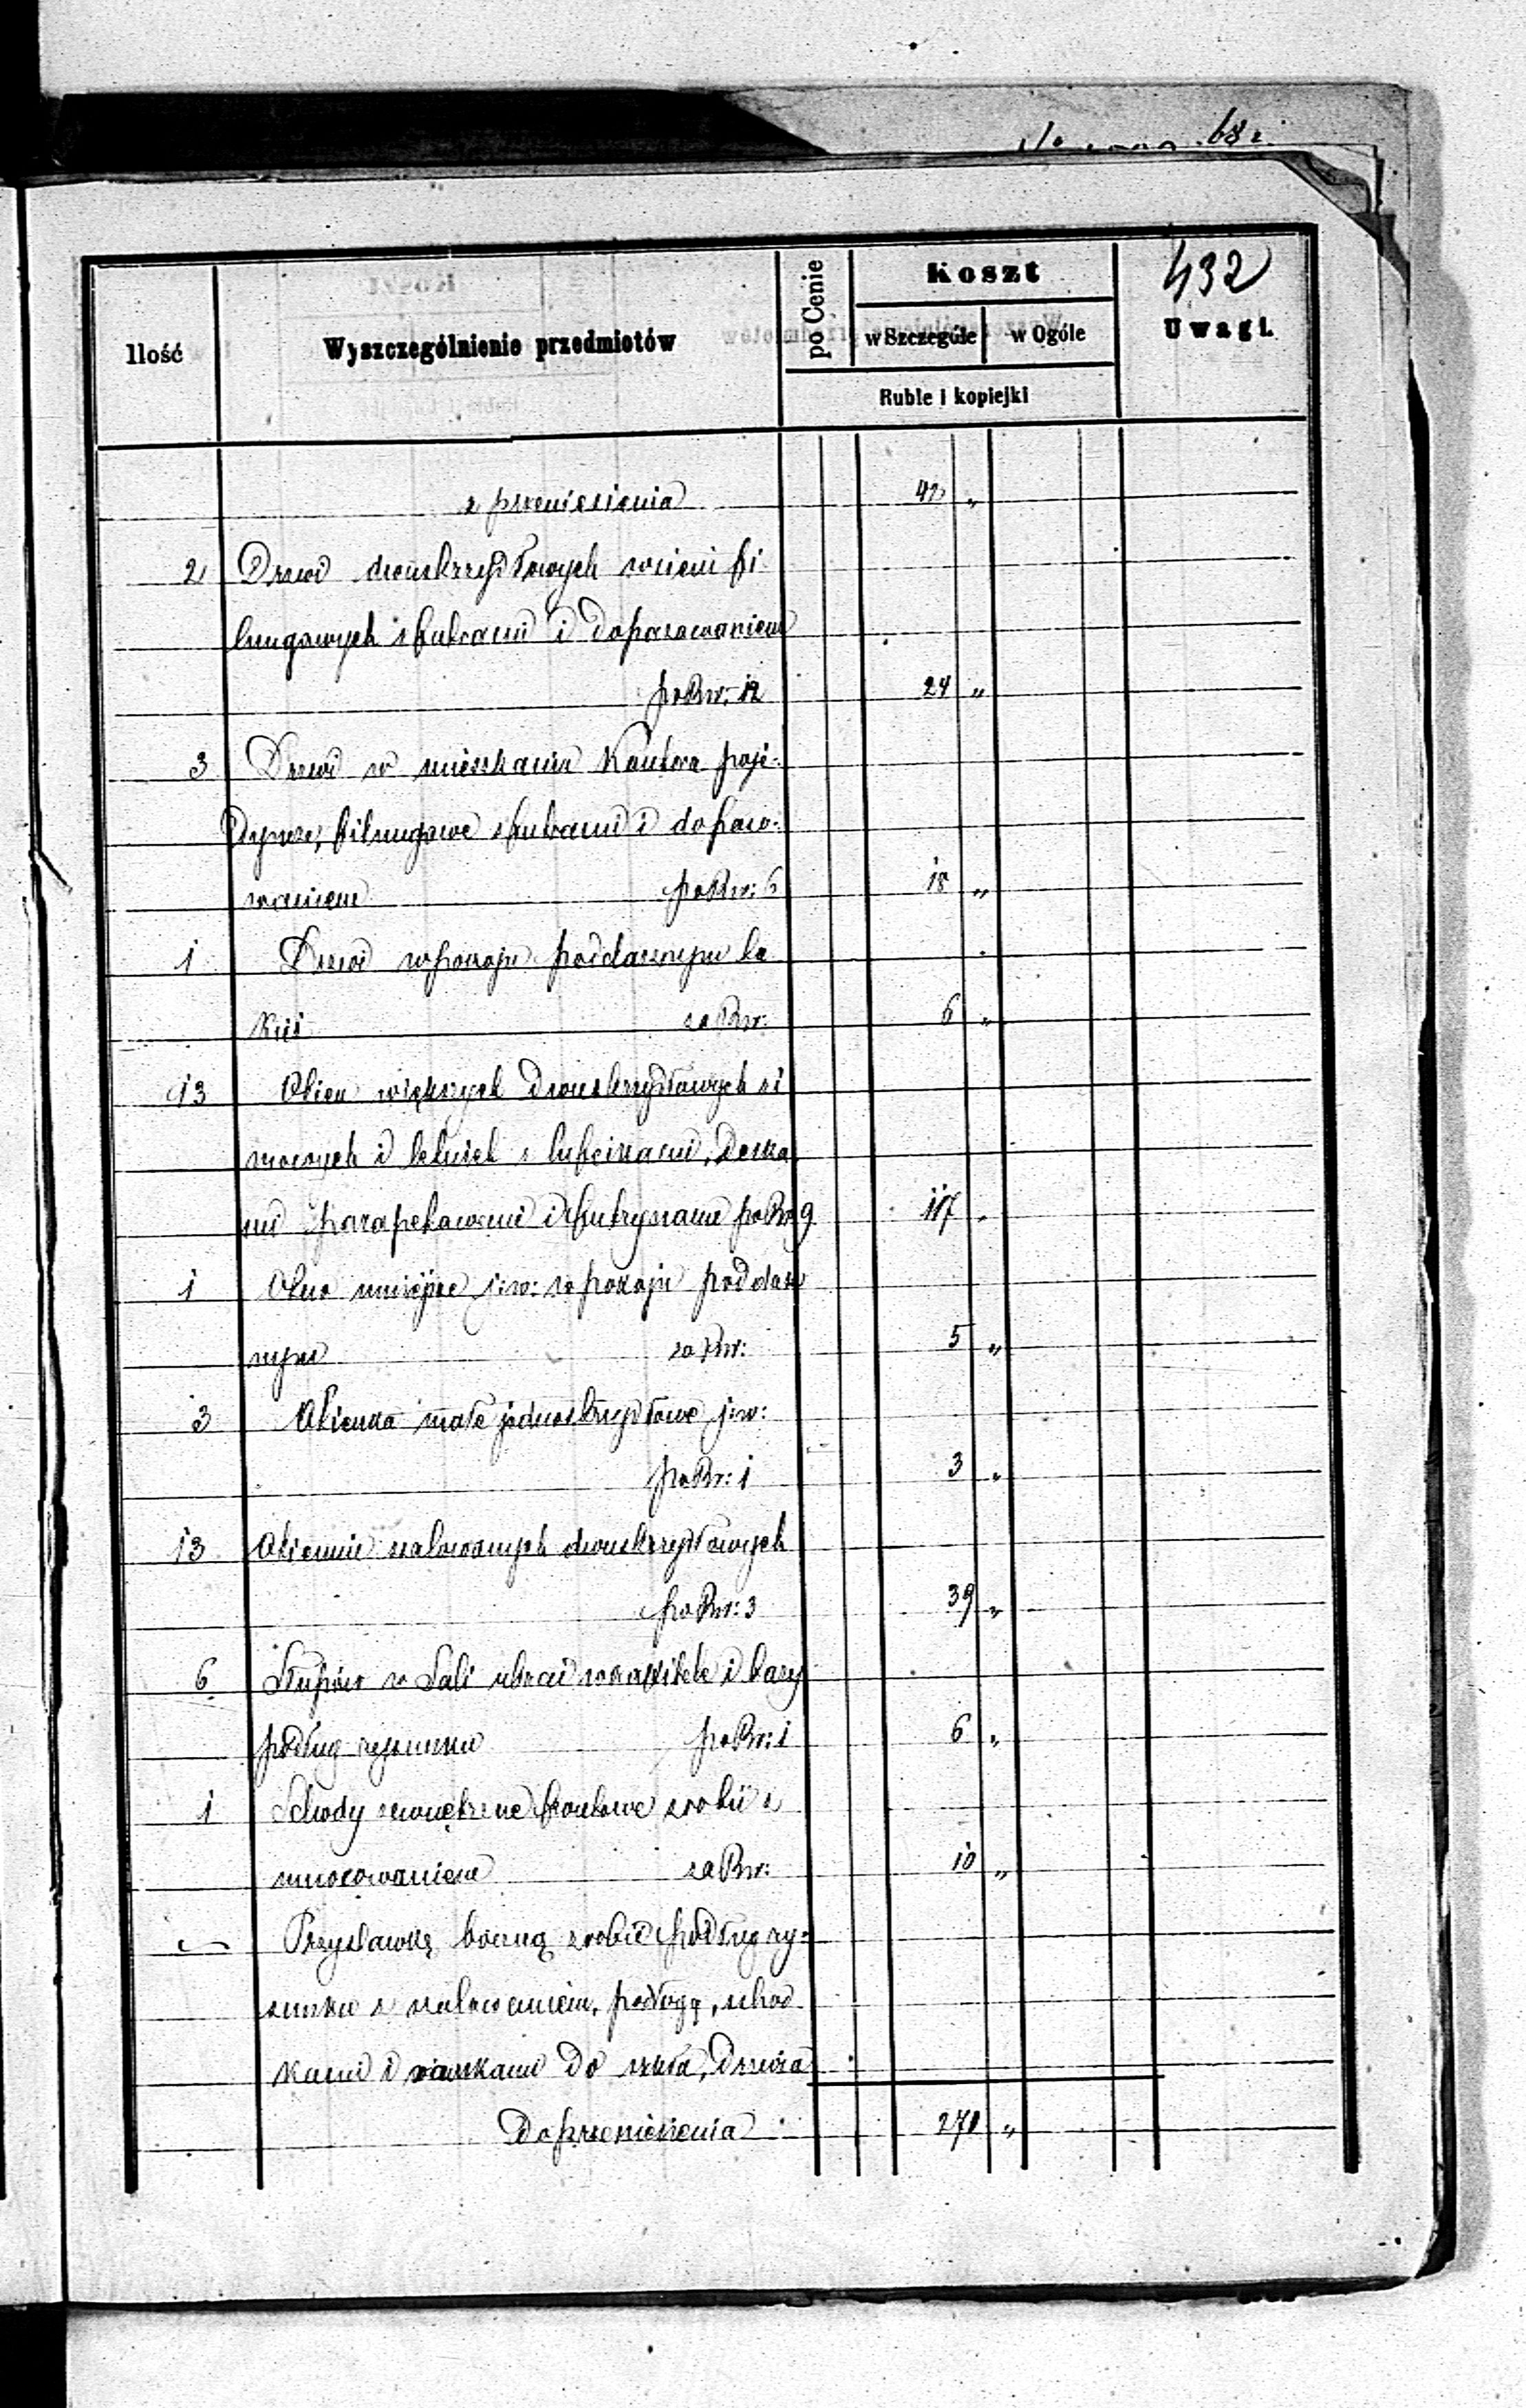 68
432
Ilość
Wyszczególnienie przedmiotów
po Cenie
Koszt
w Szczególe w Ogóle
Ruble i kopiejki
Uwagi.
z przeniesienia 42 „
2 Drzwi dwuskrzydłowych w sieni fi
lungowych z futrami i dopasowaniem
po Rsr: 12 24 „
3 Drzwi w mieszkaniu Kantora poje-
dyncze, filungowe z futrami i dopaso-
waniem po Rsr: 6 18 „
1 Drzwi w pokoju poddasznym ta
kież za Rsr: 6 „
13 Okien większych dwuskrzydłowych zi
mowych i letnich z lufcikami, deska
mi parapetowemi i futrynami po Rsr 9 117 „
1 Okno mniejsze j:w: w pokoju poddasz
nym za Rsr: 5 „
3 Okienka małe jednoskrzydłowe j:w:
po Rsr: 1 3 „
13 Okiennic szalowanych dwuskrzydłowych
po Rsr: 3 39 „
6 Słupów w Sali ubrać w kapitele i bazy
podług rysunku po Rsr: 1 6 „
1 Schody zewnętrzne frontowe zrobić z
umocowaniem za Rsr: 10 „
— Przystawkę boczną zrobić podług ry-
sunku z szalowaniem, podłogą, schod
kami i ramkami do szkła, drzwia
Do przeniesienia 270 „